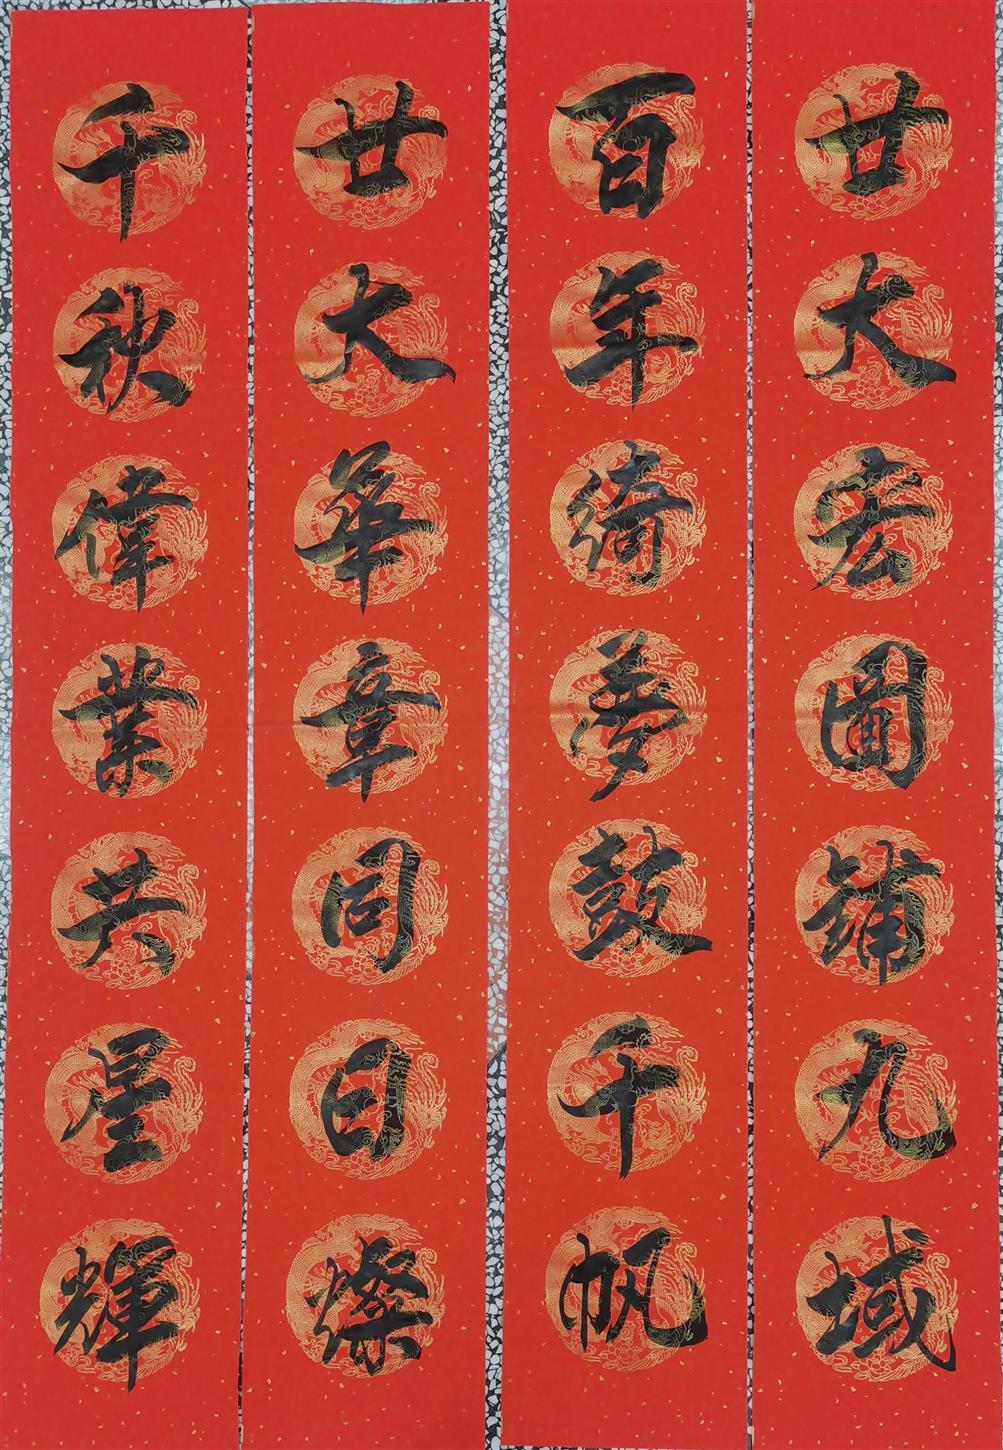 廿大宏圖鋪九域
百年綺夢鼓千帆
廿大華章同日燦
千秋偉業共星輝